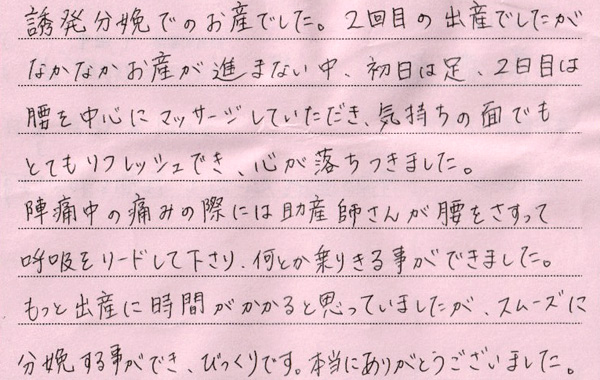 誘発分娩でのお産でした。2回目の出産でしたが
なかなかお産が進まない中、初日は足、2日目は
腰を中心にマッサージしていただき、気持ちの面でも
とてもリフレッシュでき、心が落ちつきました。
陣痛中の痛みの際には助産師さんが腰をさすって
呼吸をリードして下さり、何とか乗りきる事ができました。
もっと出産に時間がかかると思っていましたが、スムーズに
分娩する事ができ、びっくりです。本当にありがとうございました。